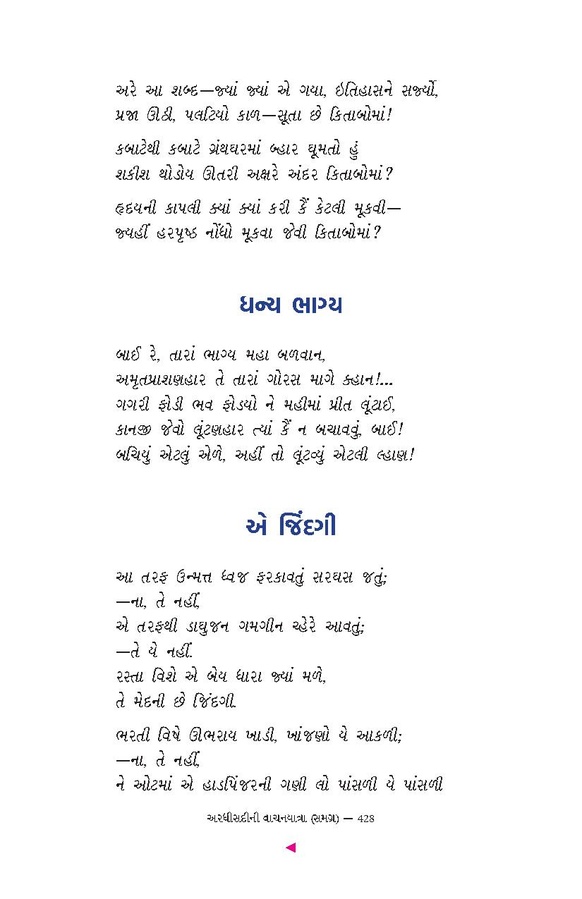 અરે આ શબ્દ—જ્યાં જ્યાં એ ગયા, ઇતિહાસને સર્જ્યો,
પ્રજા ઊઠી, પલટિયો કાળ—સૂતા છે કિતાબોમાં!
કબાટેથી કબાટે ગ્રંથઘરમાં બ્હાર ઘૂમતો હું
શકીશ થોડોય ઊતરી અક્ષરે અંદર કિતાબોમાં?
હૃદયની કાપલી ક્યાં ક્યાં કરી કૈં કેટલી મૂકવી—
જ્યહીં હરપૃષ્ઠ નોંધો મૂકવા જેવી કિતાબોમાં?
ધન્ય ભાગ્ય
બાઈ રે, તારાં ભાગ્ય મહા બળવાન,
અમૃતપ્રાશણહાર તે તારાં ગોરસ માગે ક્હાન!...
ગગરી ફોડી ભવ ફોડયો ને મહીમાં પ્રીત લૂંટાઈ,
કાનજી જેવો લૂંટણહાર ત્યાં કૈં ન બચાવવું, બાઈ!
બચિયું એટલું એળે, અહીં તો લૂંટવ્યું એટલી લ્હાણ!
એ જિંદગી
આ તરફ ઉન્મત્ત ધ્વજ ફરકાવતું સરઘસ જતું;
—ના, તે નહીં,
એ તરફથી ડાઘુજન ગમગીન ચ્હેરે આવતું;
—તે યે નહીં.
રસ્તા વિશે એ બેય ધારા જ્યાં મળે,
તે મેદની છે જિંદગી.
ભરતી વિષે ઊભરાય ખાડી, ખાંજણો યે આકળી;
—ના, તે નહીં,
ને ઓટમાં એ હાડપિંજરની ગણી લો પાંસળી યે પાંસળી
અરધીસદીની વાચનયાત્રા (સમગ્ર) — 428